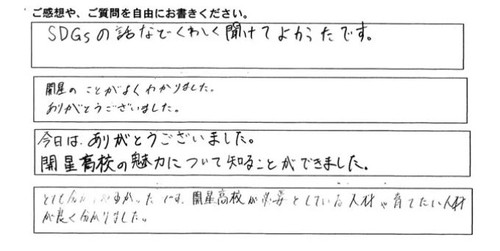 ご感想や、ご質問を自由にお書きください。
SDGsの話などくわしく聞けてよかったです。
開星のことがよくわかりました。
ありがとうございました。
今日は、ありがとうございました。
開星高校の魅力について知ることができました。
開星高校が必要としている人材や育てたい人材
が良く分かりました。